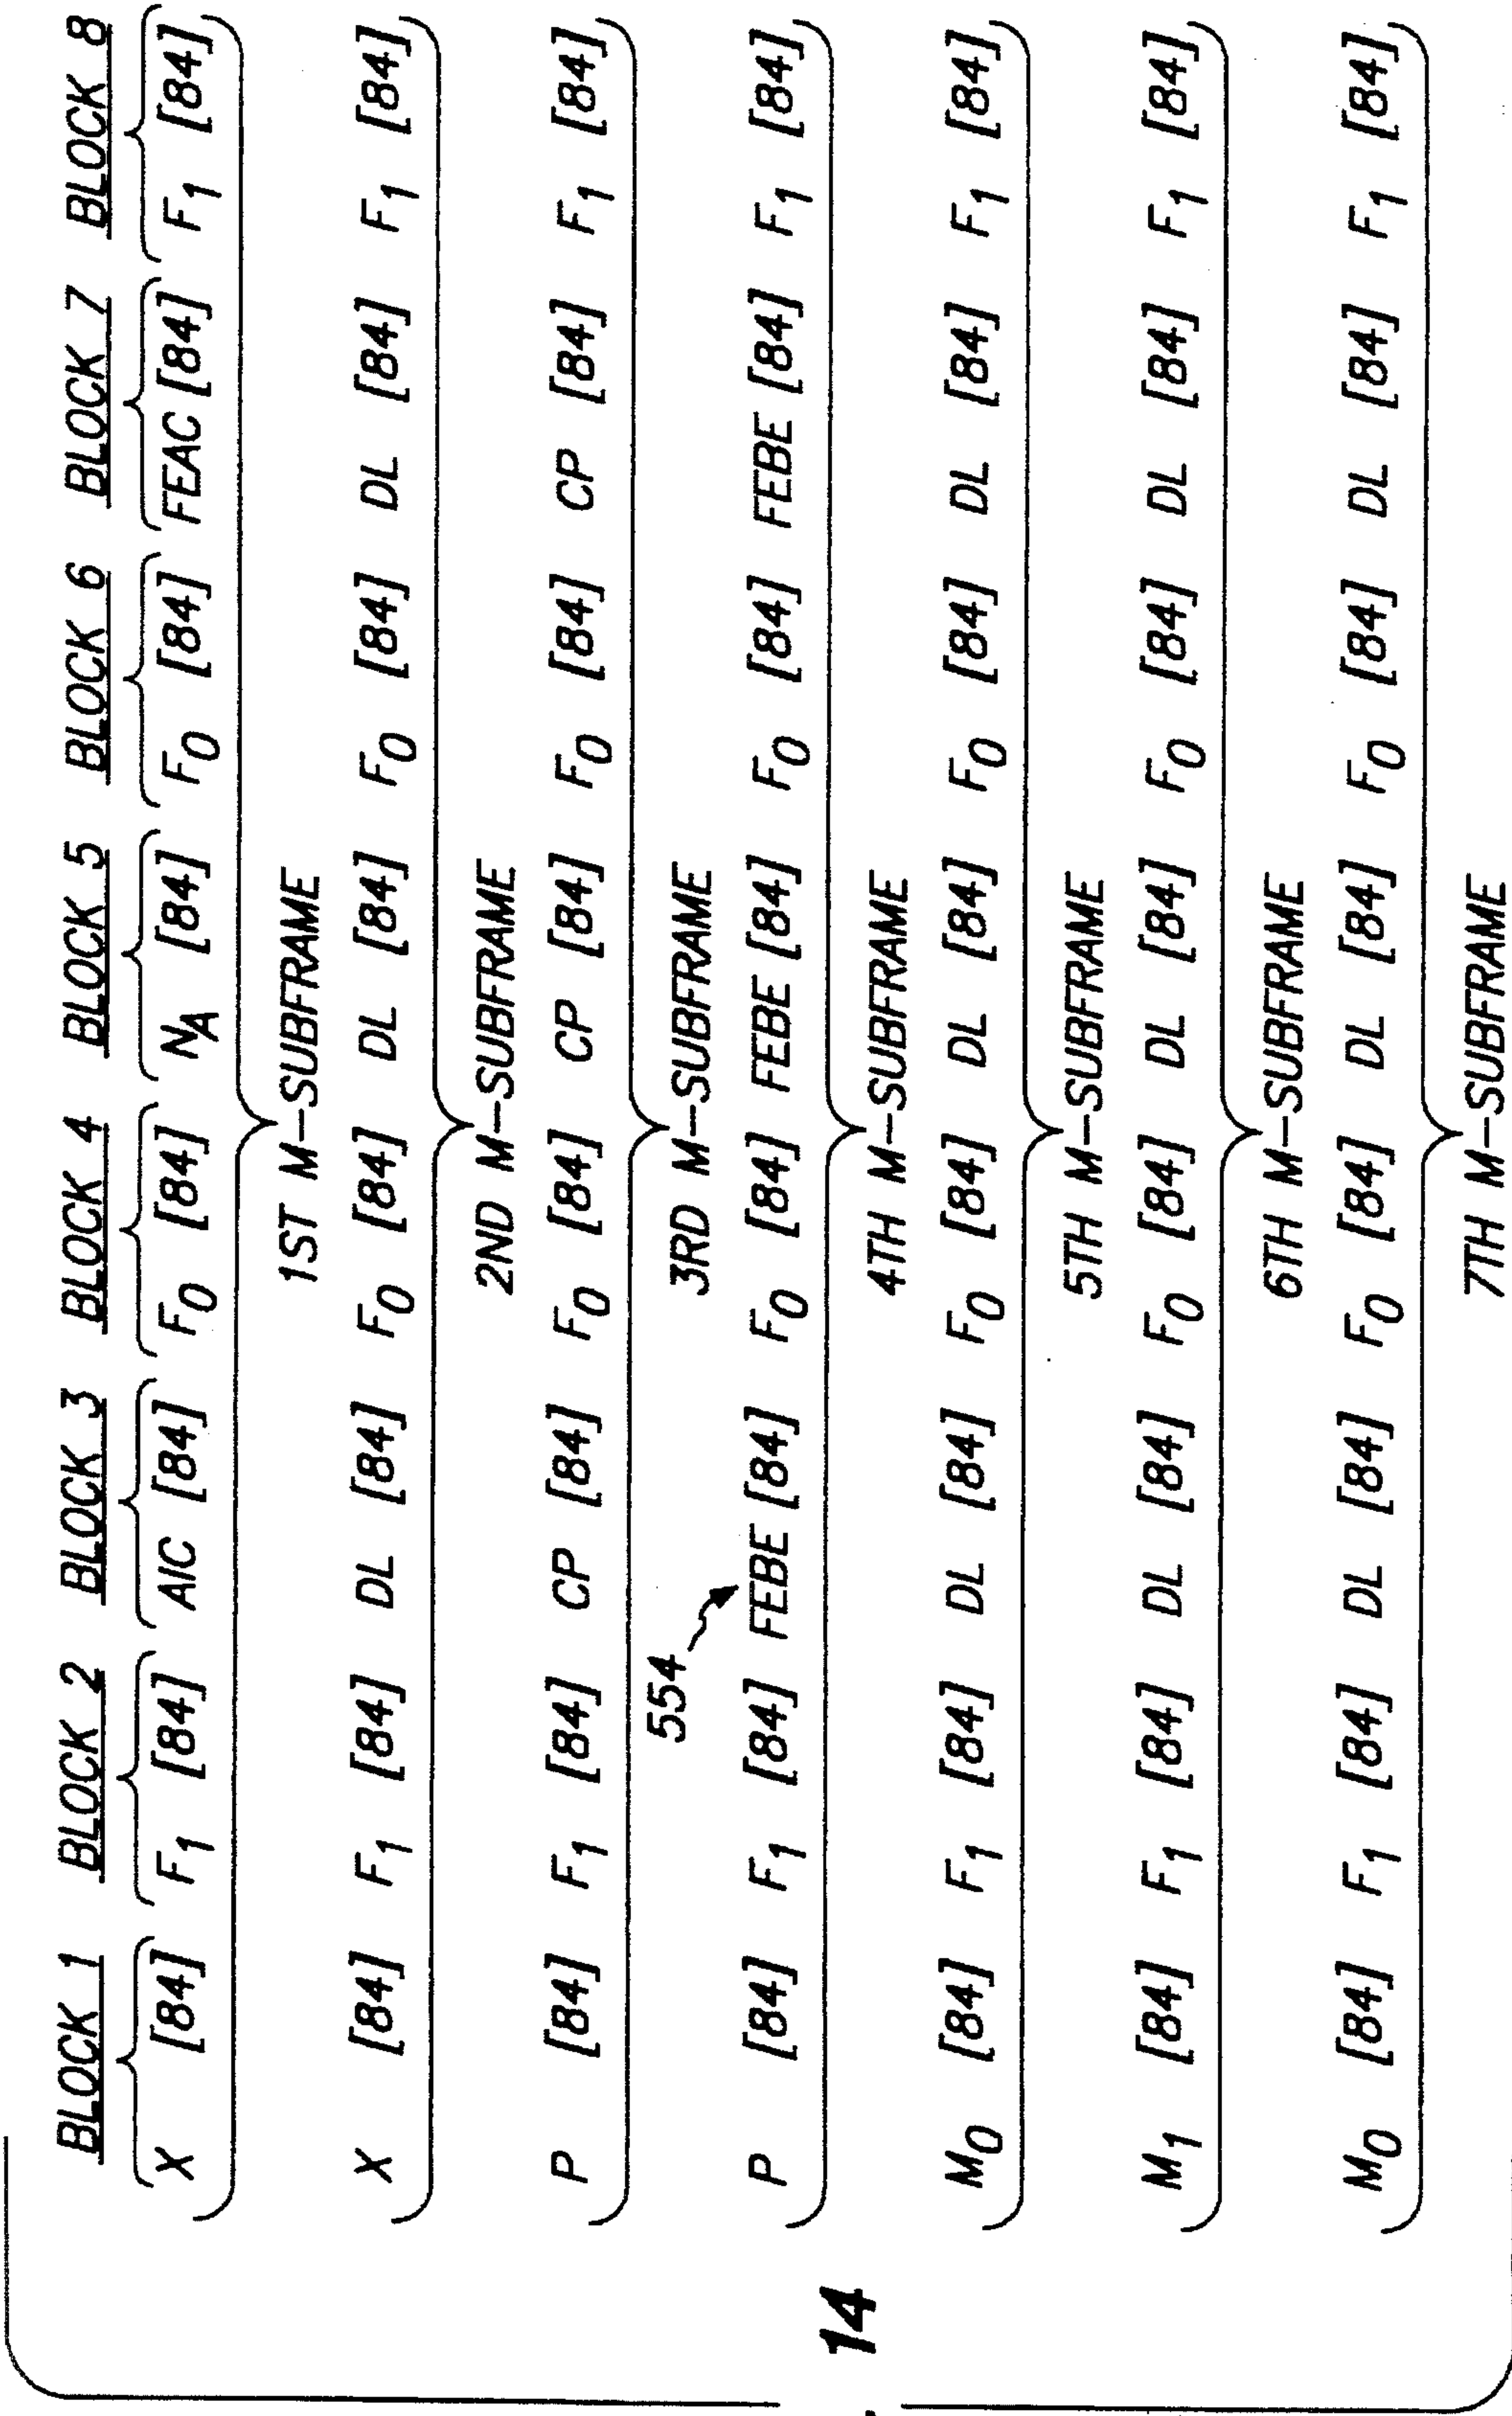 BLOCK 1 BLOCK 2 BLOCK 3 BLOCK 4 BLOCK 5 BLOCK 6 BLOCK 7 BLOCK 8
X [84] F1 [84] AIC [84] F0 [84] NA [84] F0 [84] FEAC [84] F1 [84]
1ST M-SUBFRAME
X [84] F1 [84] DL [84] F0 [84] DL [84] F0 [84] DL [84] F1 [84]
2ND M-SUBFRAME
P [84] F1 [84] CP [84] F0 [84] CP [84] F0 [84] CP [84] F1 [84]
554 3RD M-SUBFRAME
P [84] F1 [84] FEBE [84] F0 [84] FEBE [84] F0 [84] FEBE [84] F1 [84]
14 4TH M-SUBFRAME
M0 [84] F1 [84] DL [84] F0 [84] DL [84] F0 [84] DL [84] F1 [84]
5TH M-SUBFRAME
M1 [84] F1 [84] DL [84] F0 [84] DL [84] F0 [84] DL [84] F1 [84]
6TH M-SUBFRAME
M0 [84] F1 [84] DL [84] F0 [84] DL [84] F0 [84] DL [84] F1 [84]
7TH M-SUBFRAME